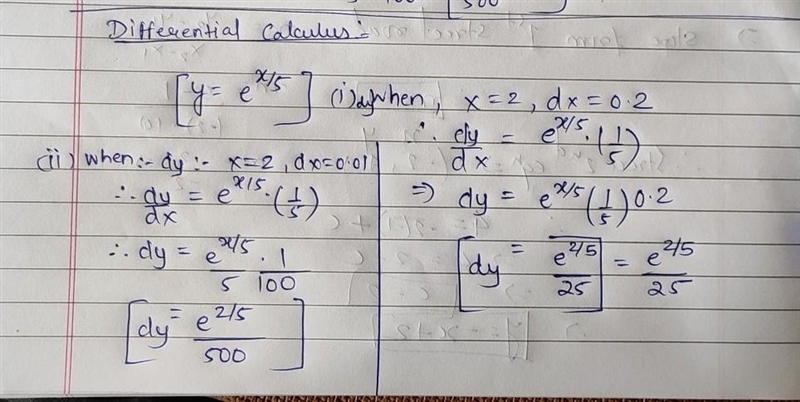 500
Differential Calculus:-
[y = e^x/5] (i) dy when, x = 2, dx = 0.2
∴ dy/dx = e^x/5 · (1/5)
⇒ dy = e^x/5 (1/5) 0.2
[dy = e^2/5/25] = e^2/5/25
(ii) when:- dy:- x=2, dx=0.01
∴ dy/dx = e^x/5 · (1/5)
∴ dy = e^x/5/5 · 1/100
[dy = e^2/5/500]